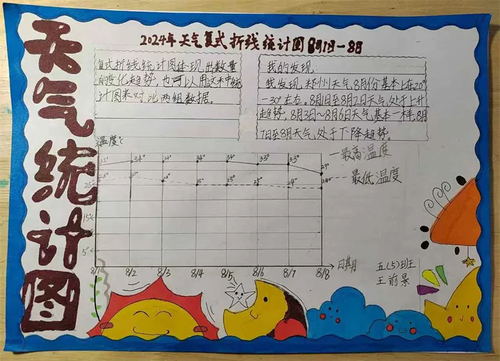 天气统计图
2024年天气复式折线统计图8月1日-8日
复式折线统计图能体现出数量
的变化趋势,也可以用这术中统
计图来对比两组数据。
我的发现
我发现,郑州天气,8月份基本上在20°
-30°左右。8月1日至8月2日天气处于上升
趋势,8月3日~8月6日天气基本一样,8月
7日至8日天气处于下降趋势。
温度℃
最高温度
最低温度
15℃
5℃
8/1
8/2
8/3
8/4
8/5
8/6
8/7
8/8
日期
五(5)班
王